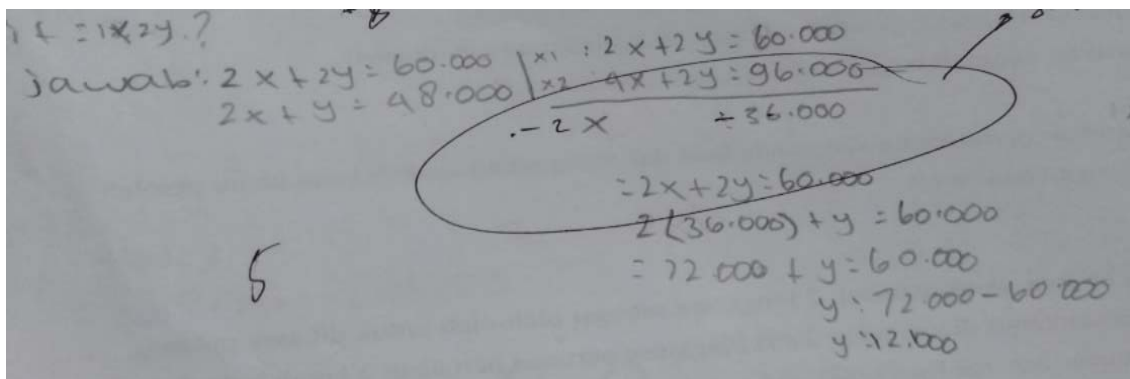 = 1x 2y.?
jawab: 2x + 2y = 60.000 | x1 : 2x + 2y = 60.000
2x + y = 48.000 | x2 4x + 2y = 96.000
- 2x = 36.000
= 2x + 2y = 60.000
2(36.000) + y = 60.000
= 72.000 + y = 60.000
y : 72.000 - 60.000
y : 12.000
5